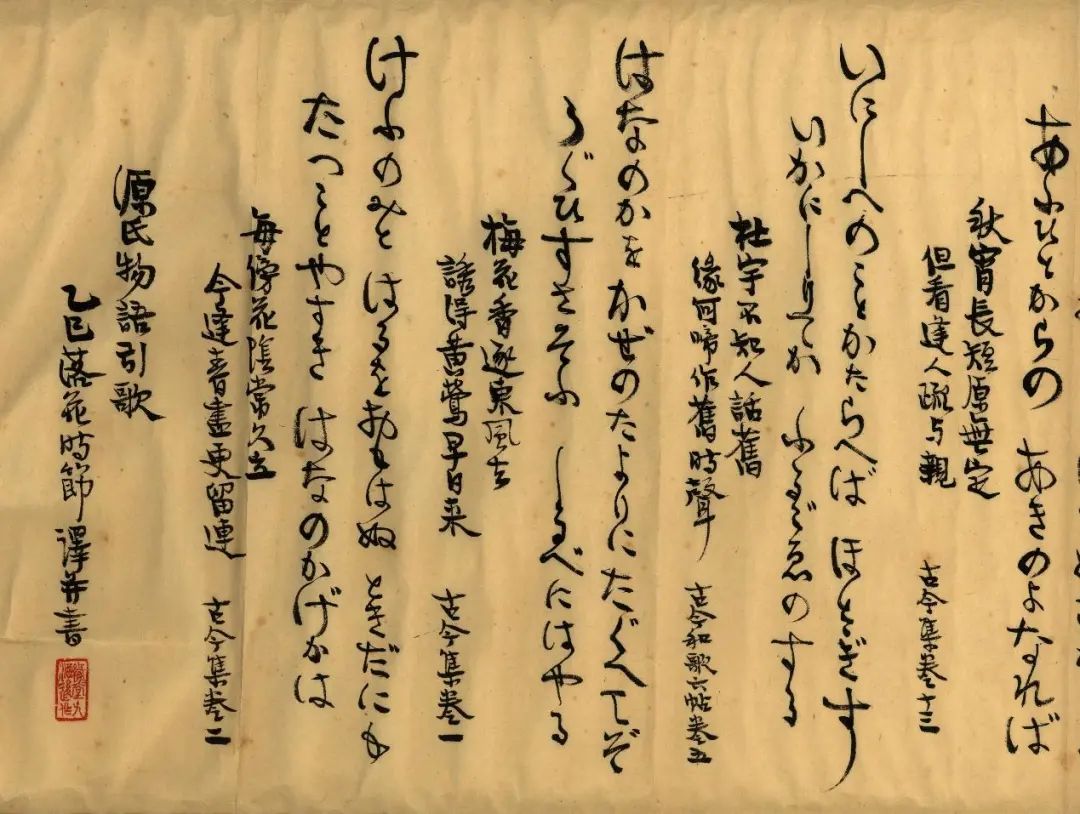 あふひとからの あきのよなれば
秋宵長短原無定
但看逢人疏与親 古今集卷十三
いにしへのことかたらへば ほとゝぎす
いかにしりてか ふるごゑのする
杜宇不知人話舊
緣何啼作舊時聲 古今和歌六帖卷五
はなのかを かぜのたよりにたぐへてぞ
うぐひすさそふ しるべにはやる
梅花香逐東風去
誘得黄鶯早日来 古今集卷一
けふのみと はるをおもはぬ ときだにも
たつことやすき はなのかげかは
每傍花陰常久立
今逢春盡更留連 古今集卷二
源氏物語引歌
乙巳落花時節 譯并書